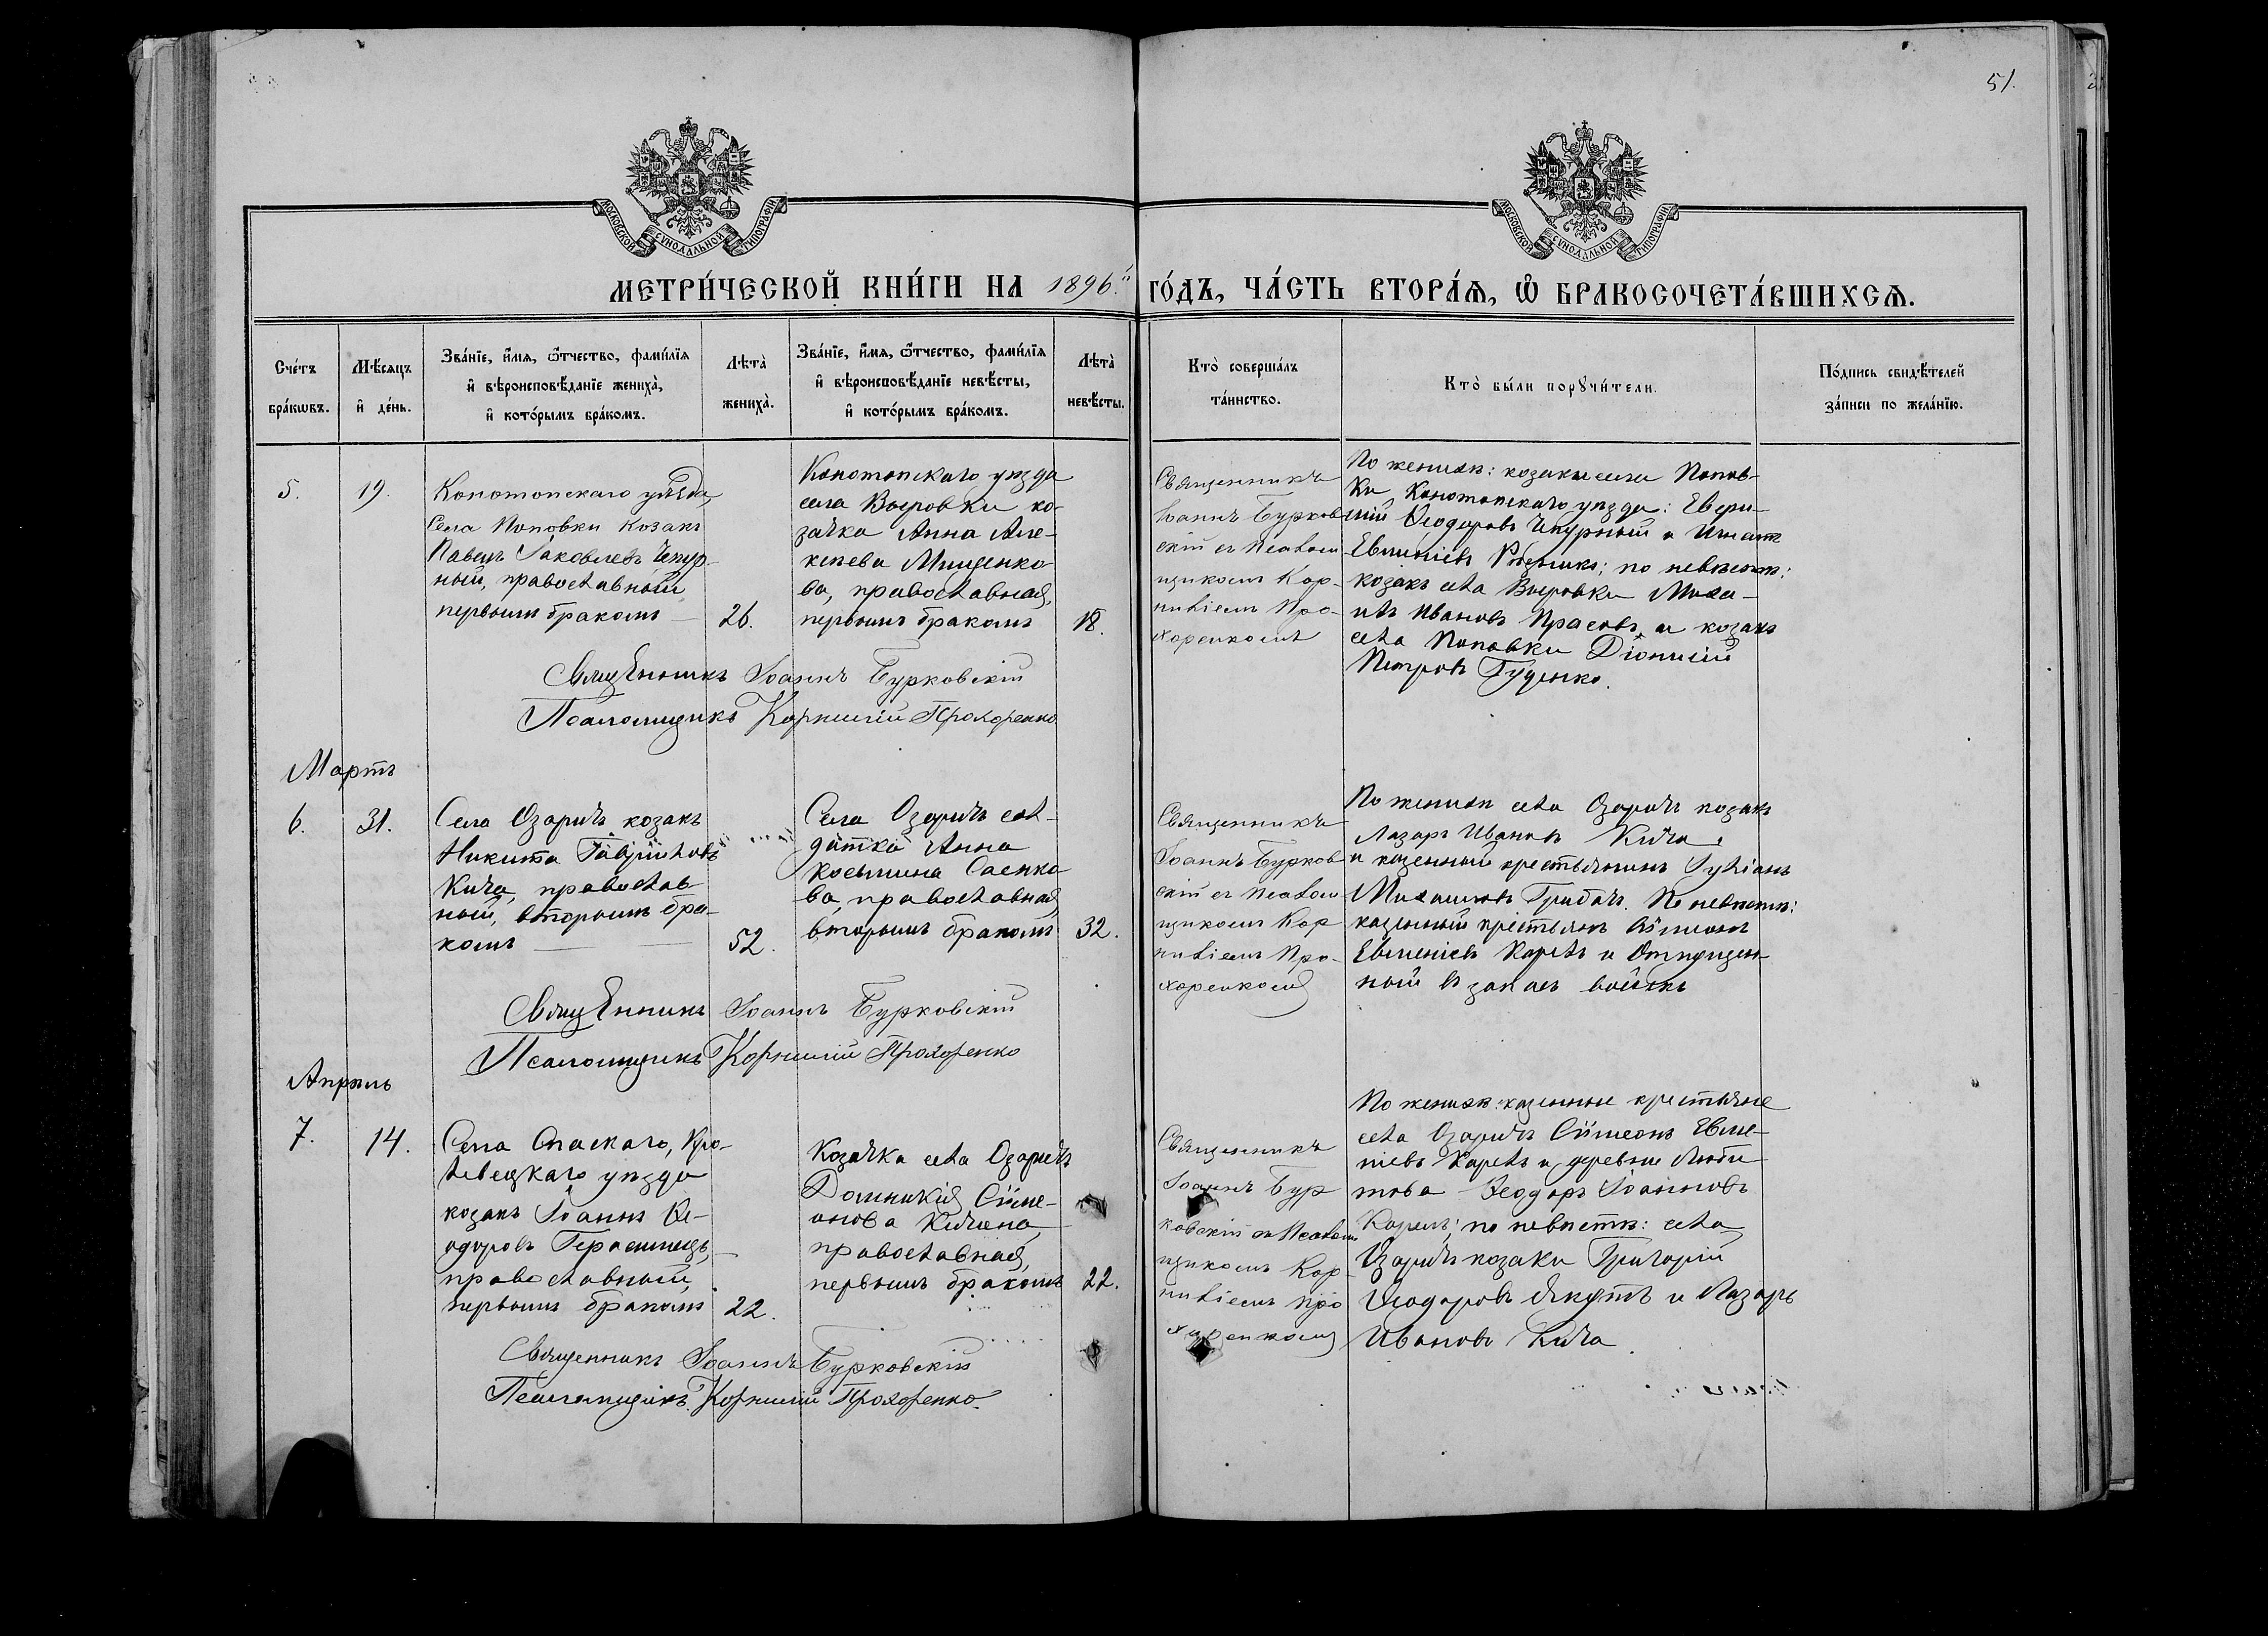 51.
МОСКОВСКОЙ СУНОДАЛЬНОЙ ТИПОГРАФІИ
МОСКОВСКОЙ СУНОДАЛЬНОЙ ТИПОГРАФІИ
МЕТРИ́ЧЕСКОЙ КНИ́ГИ НА 1896.й ГО́ДЪ, ЧА́СТЬ ВТОРА́Я, Ѡ БРАКОСОЧЕТА́ВШИХСЯ.
Сче́тъ
бра́кѡвъ.
Мѣ́сяцъ
и҆ де́нь.
Зва́нїе, и҆́мя, ѻ҆́тчество, фами́лїя
и҆ вѣроисповѣ́данїе жениха̀,
и҆ кото́рымъ бра́комъ.
Лѣта̀
жениха̀.
Зва́нїе, и҆́мя, ѻ҆́тчество, фами́лїя
и҆ вѣроисповѣ́данїе невѣ́сты,
и҆ кото́рымъ бра́комъ.
Лѣта̀
невѣ́сты.
Кто̀ соверша́лъ
та́инство.
Кто̀ бы́ли порꙋчи́тели.
По́дпись свидѣ́телей
за́писи по жела́нїю.
5.
19.
Конотопскаго уѣзда,
Села Поповки козакъ
Павелъ Іаковлевъ Чепур-
ный, православный
первымъ бракомъ
26.
Конотопскаго уѣзда
села Выровки ко-
зачка Анна Але-
ксѣева Мищенко-
ва, православная,
первымъ бракомъ
18.
Священникъ
Іоаннъ Бурков
скій съ Псалом
щикомъ Кор-
ниліемъ Про-
хоренкомъ
По женихѣ: козаки села Попов-
ки Конотопскаго уѣзда:
Ѳеодоровъ Чепурный и Игнатъ
Евменіевъ по невѣстѣ:
козакъ села Выровки Миха-
илъ Ивановъ и козакъ
села Поповки Діонисій
Петровъ Гуценко.
Священникъ Іоаннъ Бурковскій
Псаломщикъ Корнилій Прохоренко
Мартъ
6.
31.
Села Озаричъ козакъ
Никита Гавріиловъ
Кича, православ-
ный, вторымъ бра-
комъ
52.
Села Озаричъ сол-
датка Анна
Косьмина Саенко-
ва, православная,
вторымъ бракомъ
32.
Священникъ
Іоаннъ Бурков
скій съ Псалом
щикомъ Кор
ниліемъ Про-
хоренкомъ
По женихѣ села Озаричъ козакъ
Лазарь Ивановъ Кича
и казенный крестьянинъ Іуліанъ
Михаиловъ По невѣстѣ:
казенный крестьянъ Сѵмеонъ
Евменіевъ Карель и Отпущен-
ный въ запасъ войскъ
Священникъ Іоаннъ Бурковскій
Псаломщикъ Корнилій Прохоренко
Апрѣль
7.
14.
Села Спаскаго, Кро-
левецкаго уѣзда
козакъ Іоаннъ Ѳе-
одоровъ Герасимецъ,
православный,
первымъ бракомъ
22.
Козачка села Озаричъ
Домникія Сѵме-
онова Кичина,
православная,
первымъ бракомъ
22.
Священникъ
Іоаннъ Бур
ковскій съ Псалом
щикомъ Кор
ниліемъ Про
хоренкомъ
По женихѣ: казенные крестьяне
села Озаричъ Сѵмеонъ Евме-
ніевъ Карель и деревни Люби-
това Ѳеодоръ Іоанновъ
Карель; по невѣстѣ: села
Озаричъ козаки Григорій
Ѳеодоровъ Якутъ и Лазарь
Ивановъ Кича
Священникъ Іоаннъ Бурковскій
Псаломщикъ Корнилій Прохоренко